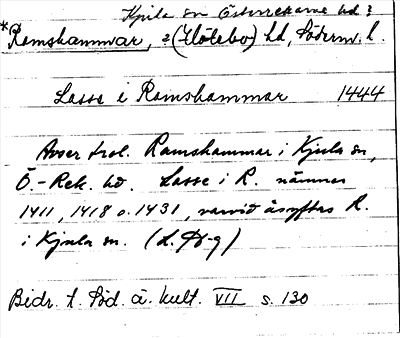 Kjula sn Österrekarne hd?
*Ramshammar, ?(Hölebo) hd, Söderm. l.
Lasse i Ramshammar 1444
Avser trol. Ramshammar i Kjula sn,
Ö.-Rek. hd. Lasse i R. nämnes
1411, 1418 o. 1431, varvid åsyftas R.
i Kjula sn. (L. Hg)
Bidr. t. Söd. ä. kult. VII s. 130